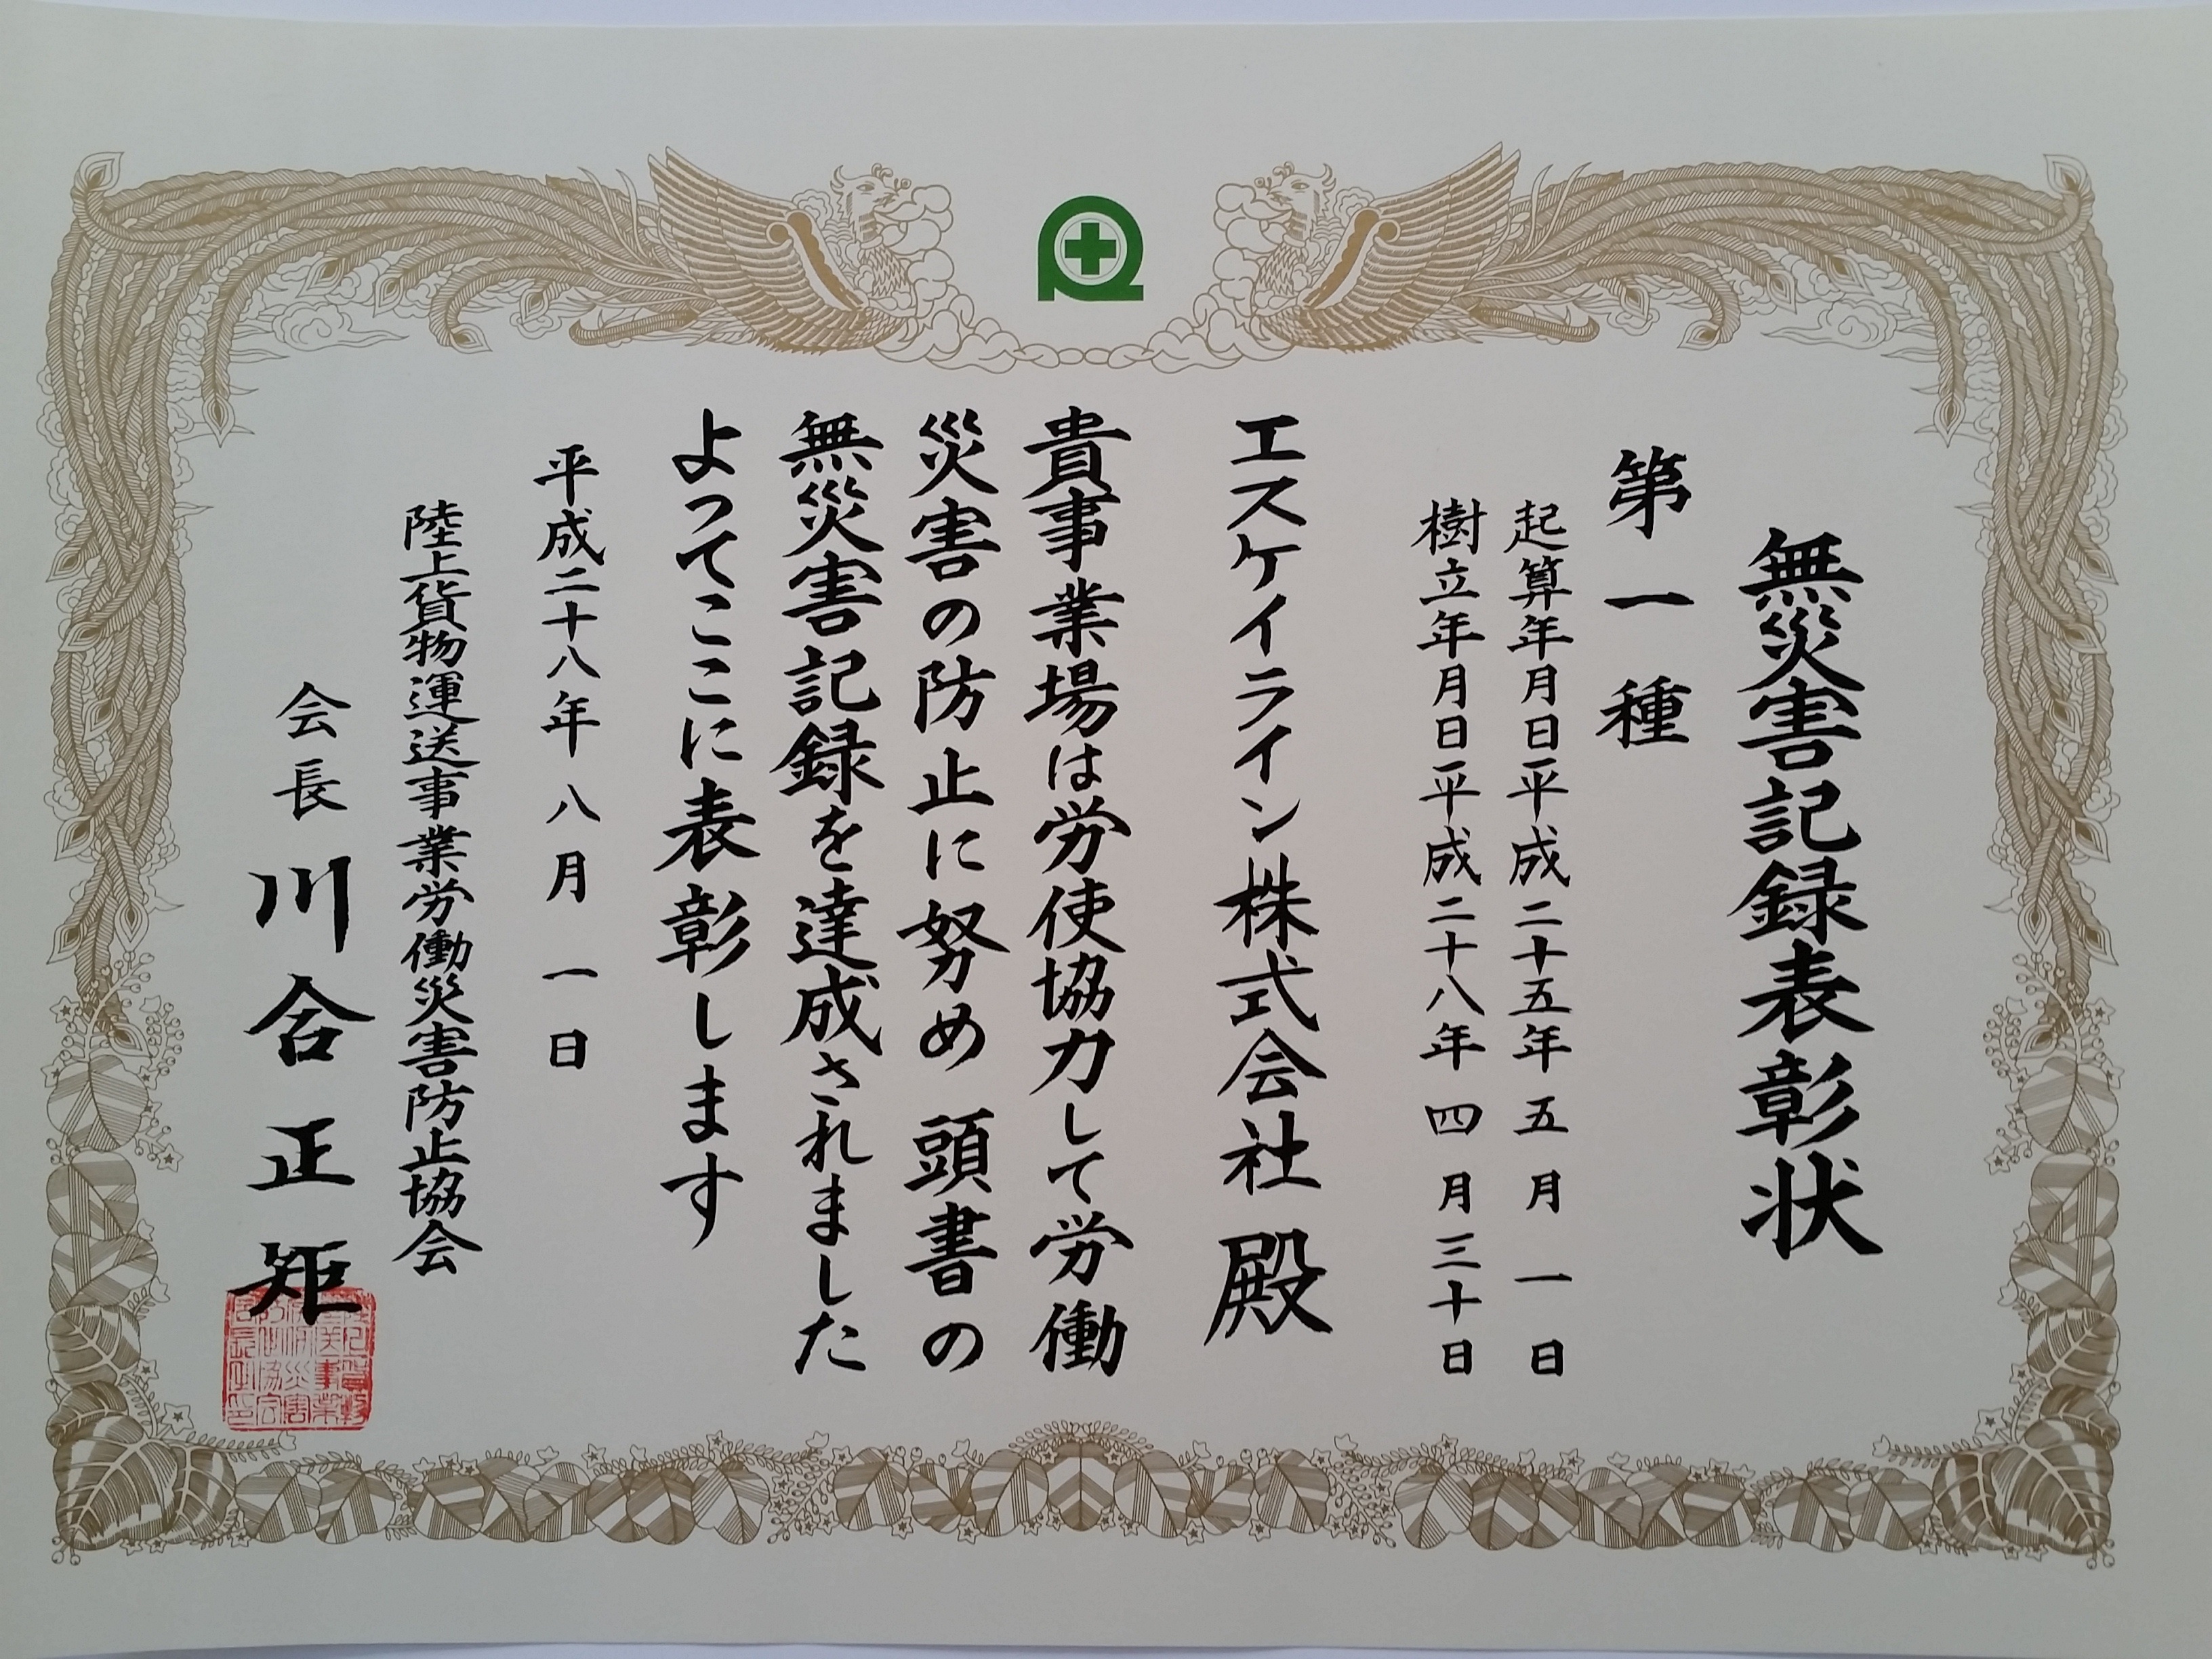 無災害記録表彰状
第一種
起算年月日平成二十五年五月一日
樹立年月日平成二十八年四月三十日
エスケイライン株式会社殿
貴事業場は労使協力して労働
災害の防止に努め頭書の
無災害記録を達成されました
よってここに表彰します
平成二十八年八月一日
陸上貨物運送事業労働災害防止協会
会長川合正矩